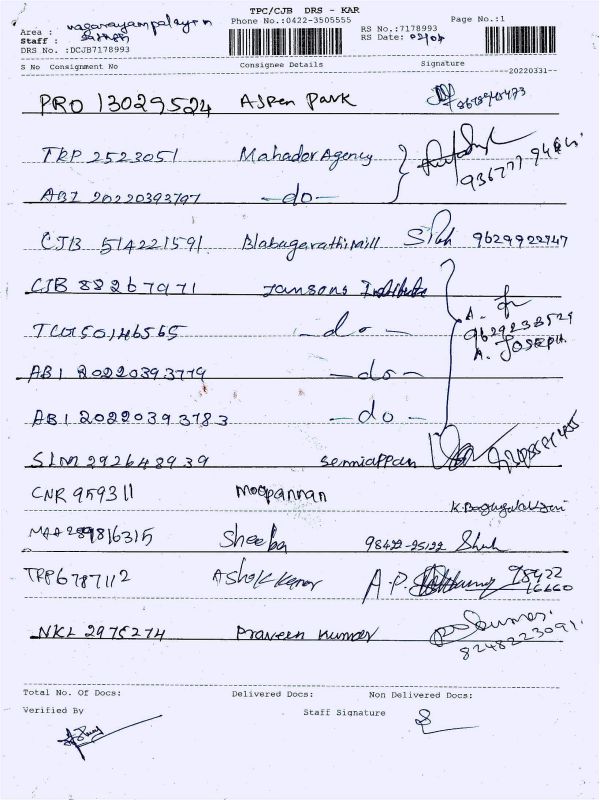 TPC/CJB DRS - KAR
Phone No.:0422-3505555
Page No.:1
Area :
Staff :
RS No.:7178993
RS Date: 02/04
DRS No. :DCJB7178993
S No Consignment No Consignee Details Signature
20220331--
PRO 13029524 Aspen Park
TRP 2523051 Mahadev Agency
ABI 20220393797 -do-
CJB 514221591 9629922747
CJB 88267971 Jansons Institute
-do-
A. JOSEPH.
ABI 20220393779 -do-
ABI 20220393783 -do-
SLM 292648939 Senniappan
CNR 959311 Moopannan
MAA 289816315 Sheeba 98422-25122
TRP 6787112 Ashok Kumar A.P. 98422 16660
NKL 2975274 Praveen Kumar
8248223091.
Total No. Of Docs: Delivered Docs: Non Delivered Docs:
Verified By Staff Signature